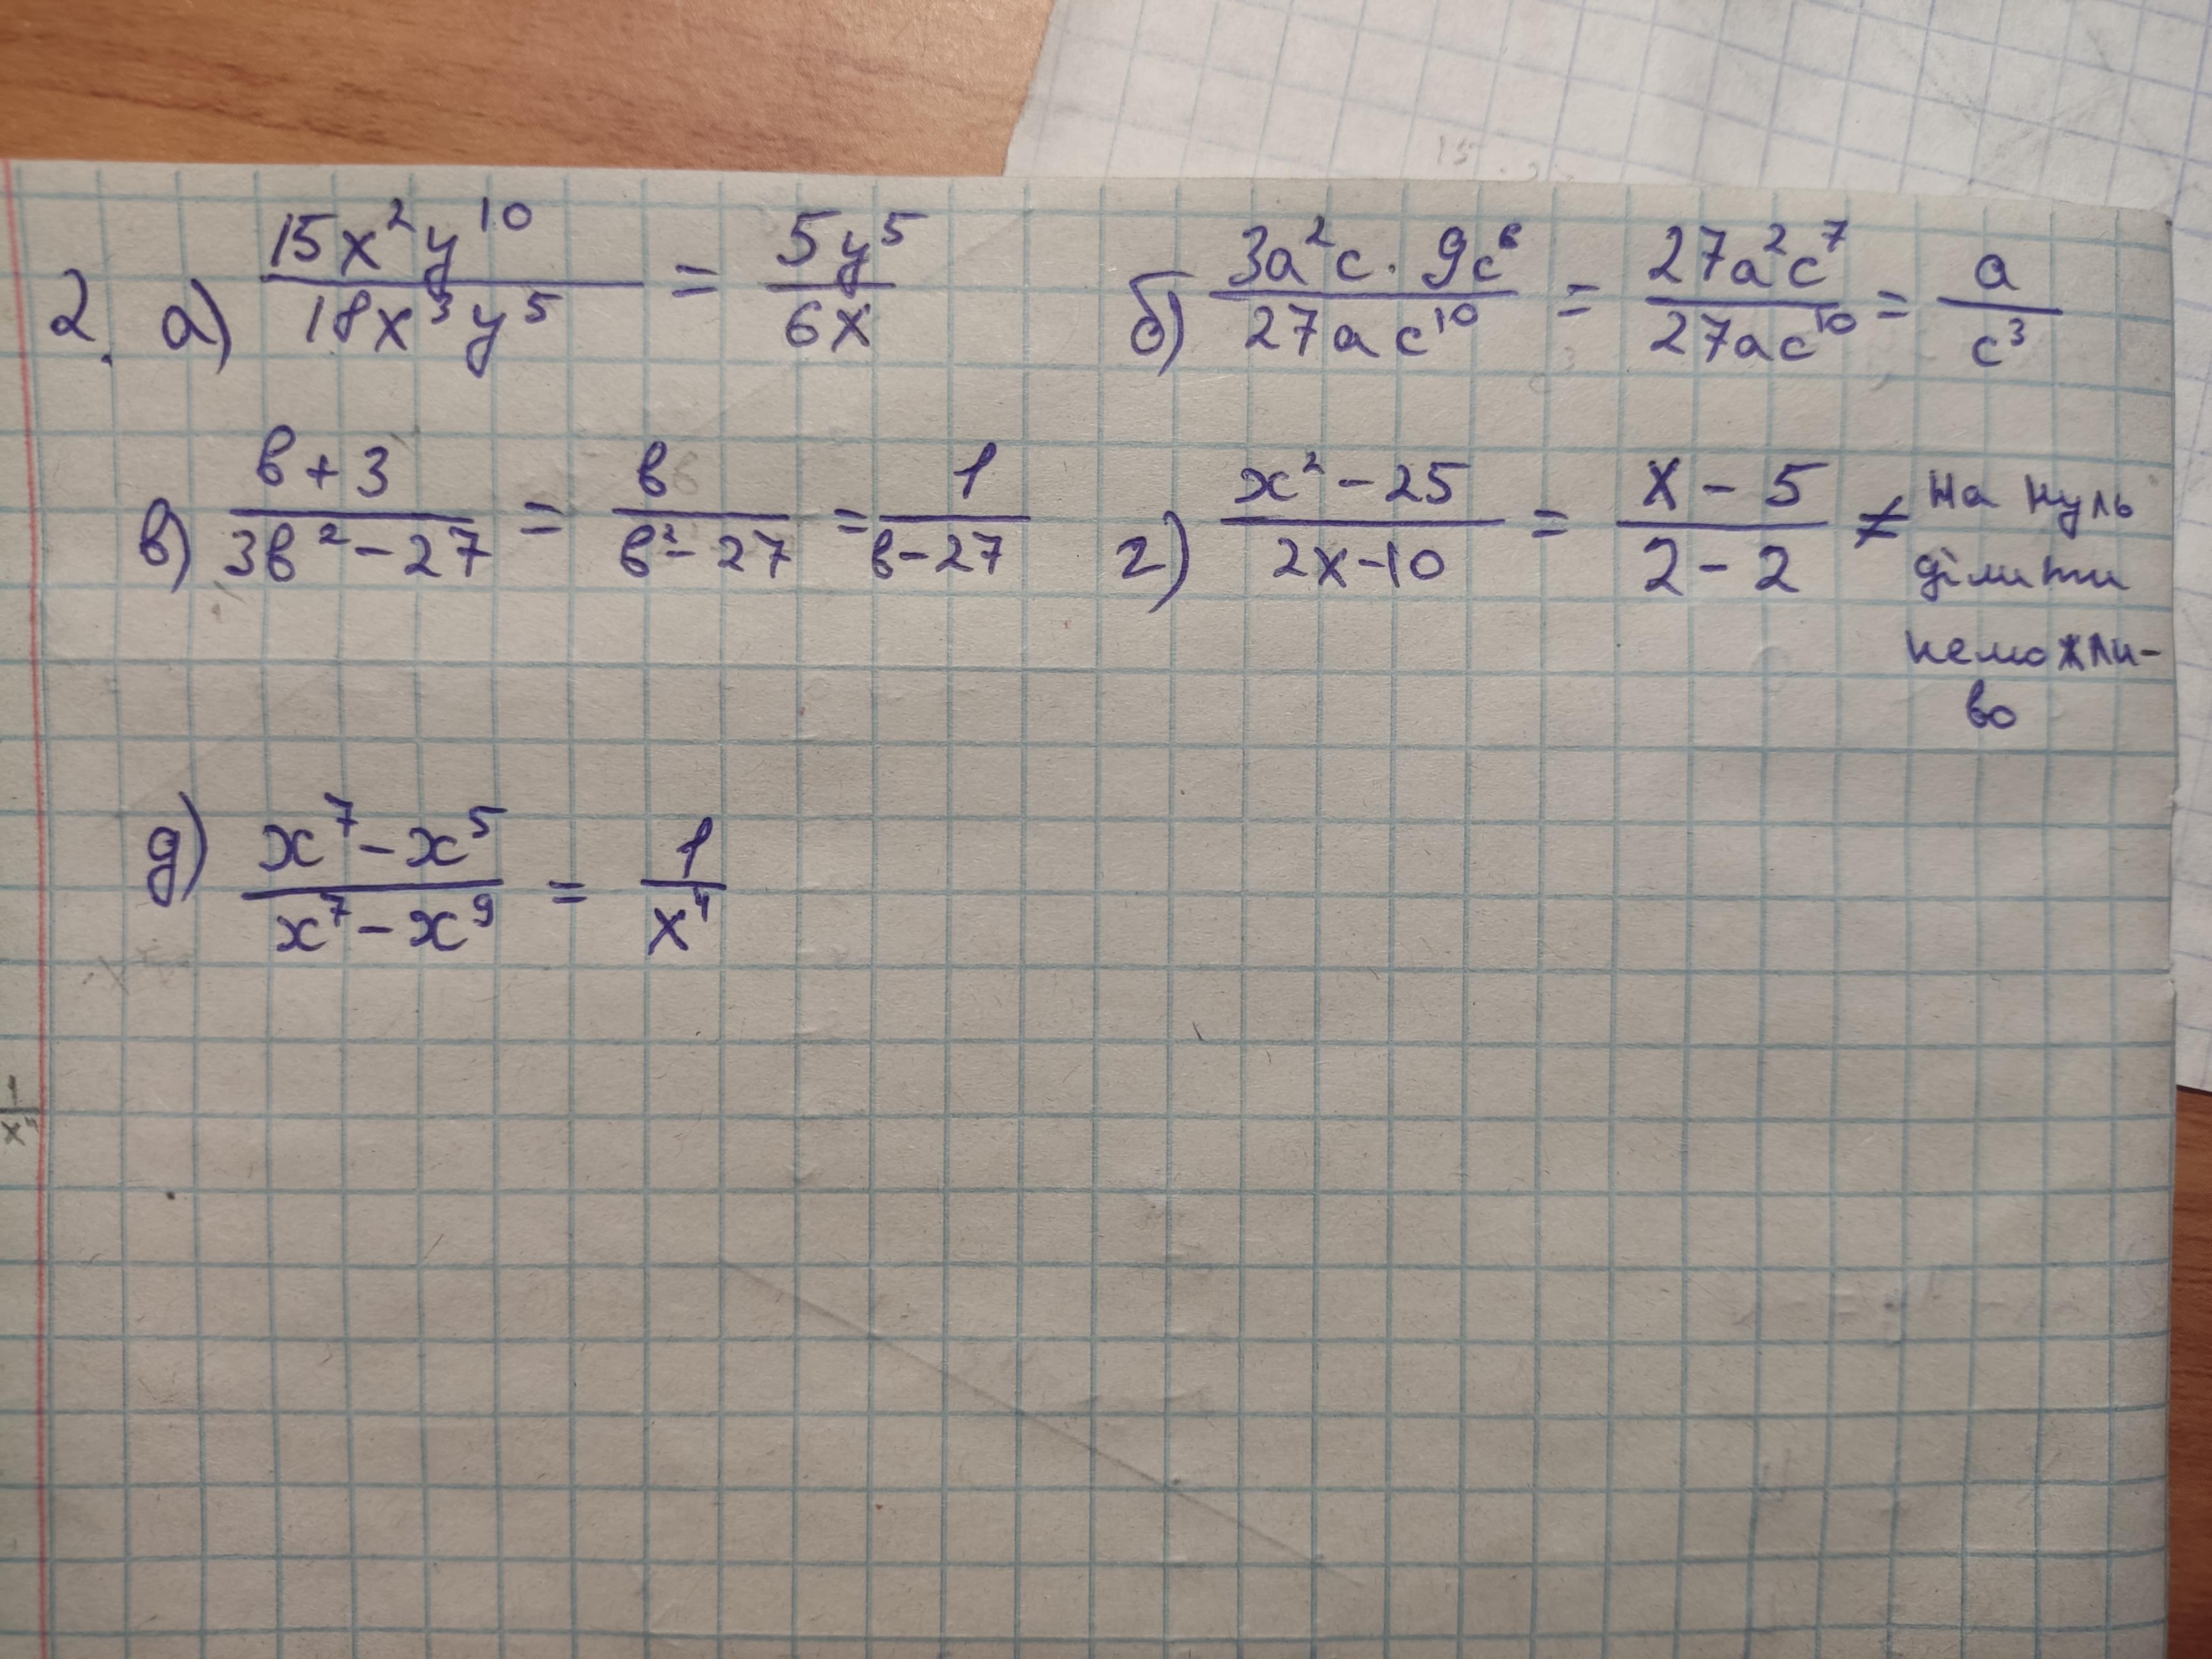 2. а) 15x²y¹⁰ / 18x³y⁵ = 5y⁵ / 6x
б) 3a²c · 9c⁶ / 27ac¹⁰ = 27a²c⁷ / 27ac¹⁰ = a / c³
в) в+3 / 3в²-27 = в / в²-27 = 1 / в-27
г) x²-25 / 2x-10 = x-5 / 2-2 ≠ На нуль
ділити
неможли-
во
д) x⁷-x⁵ / x⁷-x⁹ = 1 / x⁴
1 / x⁴
15